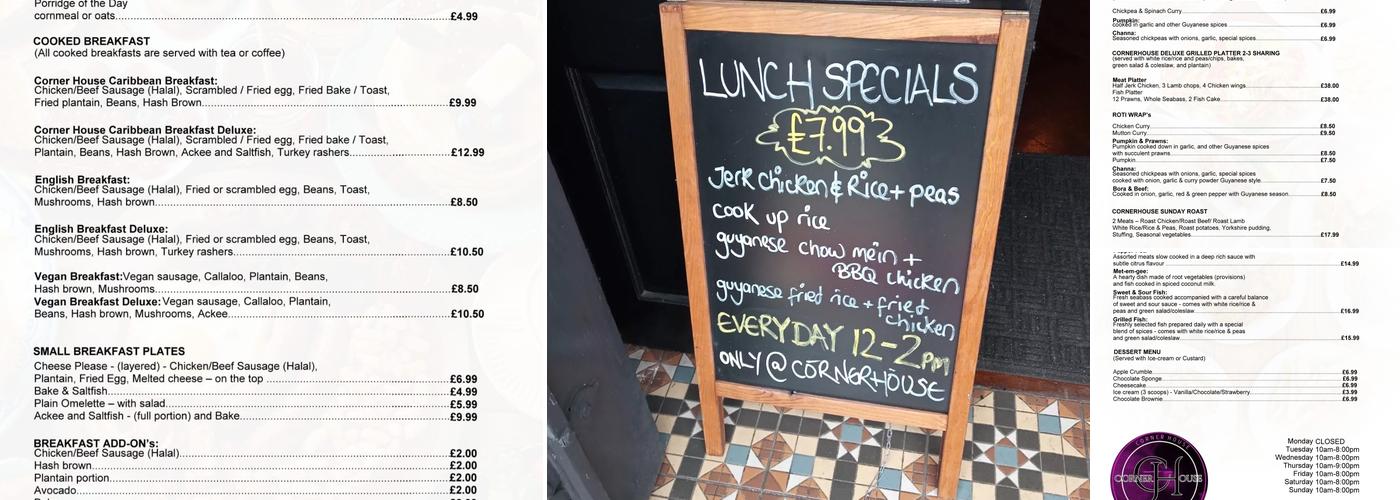 Porridge of the Day
cornmeal or oats £4.99
COOKED BREAKFAST
(All cooked breakfasts are served with tea or coffee)
Corner House Caribbean Breakfast:
Chicken/Beef Sausage (Halal), Scrambled / Fried egg, Fried Bake / Toast,
Fried plantain, Beans, Hash Brown £9.99
Corner House Caribbean Breakfast Deluxe:
Chicken/Beef Sausage (Halal), Scrambled / Fried egg, Fried bake / Toast,
Plantain, Beans, Hash Brown, Ackee and Saltfish, Turkey rashers £12.99
English Breakfast:
Chicken/Beef Sausage (Halal), Fried or scrambled egg, Beans, Toast,
Mushrooms, Hash brown £8.50
English Breakfast Deluxe:
Chicken/Beef Sausage (Halal), Fried or scrambled egg, Beans, Toast,
Mushrooms, Hash brown, Turkey rashers £10.50
Vegan Breakfast: Vegan sausage, Callaloo, Plantain, Beans,
Hash brown, Mushrooms £8.50
Vegan Breakfast Deluxe: Vegan sausage, Callaloo, Plantain,
Beans, Hash brown, Mushrooms, Ackee £10.50
SMALL BREAKFAST PLATES
Cheese Please - (layered) - Chicken/Beef Sausage (Halal),
Plantain, Fried Egg, Melted cheese – on the top £6.99
Bake & Saltfish £4.99
Plain Omelette – with salad £5.99
Ackee and Saltfish - (full portion) and Bake £9.99
BREAKFAST ADD-ON's:
Chicken/Beef Sausage (Halal) £2.00
Hash brown £2.00
Plantain portion £2.00
Avocado £2.00
LUNCH SPECIALS
£7.99
Jerk chicken & Rice + peas
cook up rice
guyanese chow mein +
BBQ chicken
guyanese fried rice + fried
chicken
EVERYDAY 12-2pm
ONLY @ CORNERHOUSE
Chickpea & Spinach Curry £6.99
Pumpkin:
cooked in garlic and other Guyanese spices £6.99
Channa:
Seasoned chickpeas with onions, garlic, special spices £6.99
CORNERHOUSE DELUXE GRILLED PLATTER 2-3 SHARING
(served with white rice/rice and peas/chips, bakes,
green salad & coleslaw, and plantain)
Meat Platter
Half Jerk Chicken, 3 Lamb chops, 4 Chicken wings £38.00
Fish Platter
12 Prawns, Whole Seabass, 2 Fish Cake £38.00
ROTI WRAP's
Chicken Curry £8.50
Mutton Curry £9.50
Pumpkin & Prawns:
Pumpkin cooked down in garlic, and other Guyanese spices
with succulent prawns £8.50
Pumpkin £7.50
Channa:
Seasoned chickpeas with onions, garlic, special spices
cooked with onion, garlic & curry powder Guyanese style £7.50
Bora & Beef:
Cooked in onion, garlic, red & green pepper with Guyanese season £8.50
CORNERHOUSE SUNDAY ROAST
2 Meats – Roast Chicken/Roast Beef/ Roast Lamb
White Rice/Rice & Peas, Roast potatoes, Yorkshire pudding,
Stuffing, Seasonal vegetables £17.99
Assorted meats slow cooked in a deep rich sauce with
subtle citrus flavour £14.99
Met-em-gee:
A hearty dish made of root vegetables (provisions)
and fish cooked in spiced coconut milk.
Sweet & Sour Fish:
Fresh seabass cooked accompanied with a careful balance
of sweet and sour sauce - comes with white rice/rice &
peas and green salad/coleslaw £16.99
Grilled Fish:
Freshly selected fish prepared daily with a special
blend of spices - comes with white rice/rice & peas
and green salad/coleslaw £15.99
DESSERT MENU
(Served with Ice-cream or Custard)
Apple Crumble £6.99
Chocolate Sponge £6.99
Cheesecake £6.99
Ice cream (3 scoops) - Vanilla/Chocolate/Strawberry £3.99
Chocolate Brownie £6.99
CORNER HOUSE
CORNER HOUSE
Monday CLOSED
Tuesday 10am-8:00pm
Wednesday 10am-8:00pm
Thursday 10am-9:00pm
Friday 10am-8:00pm
Saturday 10am-8:00pm
Sunday 10am-8:00pm